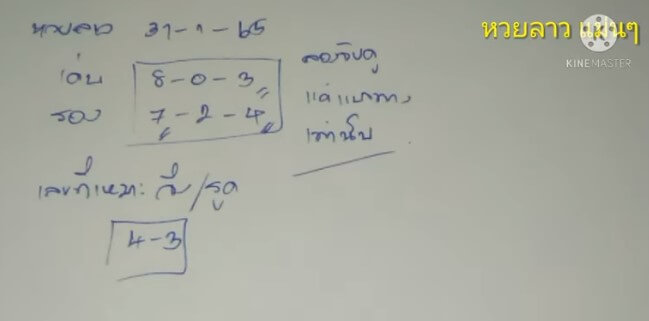 หวยลาว แม่นๆ
KINEMASTER
หวยลาว 31-1-65
เด่น 8-0-3
รอง 7-2-4
ลองจับดู
แค่แนวทาง
เท่านั้น
เลขที่เหมาะ /รูด
4-3